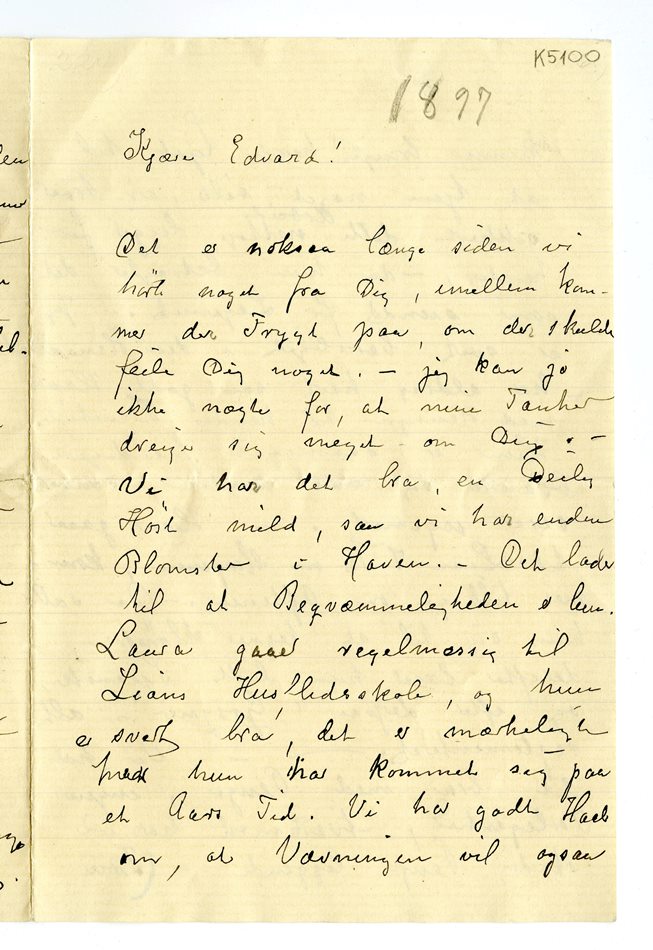 K5100
1897
Kjære Edvard!
Det er noksaa længe siden vi
hørt noget fra Dig, imellem kom-
mer der Frygt paa, om der skulde
feile Dig noget. – jeg kan jo
ikke nægte for, at mine Tanker
dreije sig meget om Dig. –
Vi har det bra, en Deilig
Høst mild, saa vi har enden
Blomster i Haven. – Det lader
til at Beqvæmmeligheden er
Laura gaaer regelmæssig til
Lians Husflidsskole, og hun
er svert bra, det er mærkeligt
hun har kommet sig paa
et Aars Tid. Vi har godt Haab
om, at Vævningen vil ogsaa